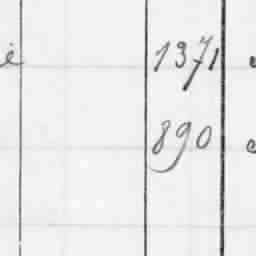 1371
890